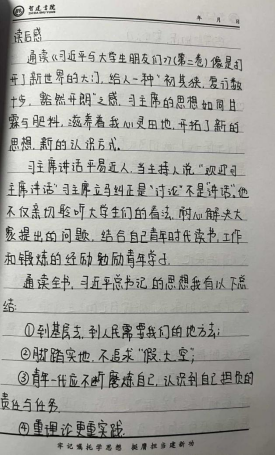 智建书院
年 月 日
读后感
通读《习近平与大学生朋友们》(第二卷)像是打
开了新世界的大门,给人一种“初极狭,复行数
十步,豁然开朗”之感,习主席的思想如同甘
霖与肥料,滋养着我心灵田地,开拓了新的
思想,新的认识方式。
习主席讲话平易近人,当主持人说“欢迎习
主席讲话”习主席立马纠正是“讨论”不是“讲话”。他
不仅亲切聆听大学生们的看法,耐心解决大
家提出的问题,结合自己青年时代读书,工作
和锻炼的经历勉励青年学
通读全书,习近平总书记的思想我有以下总
结:
①到基层去,到人民需要我们的地方去;
②脚踏实地,不追求“假大空”;
③青年一代应不断磨炼自己,认识到自己担负的
责任与任务.
④重理论更重实践.
牢记嘱托学思想 挺膺担当建新功